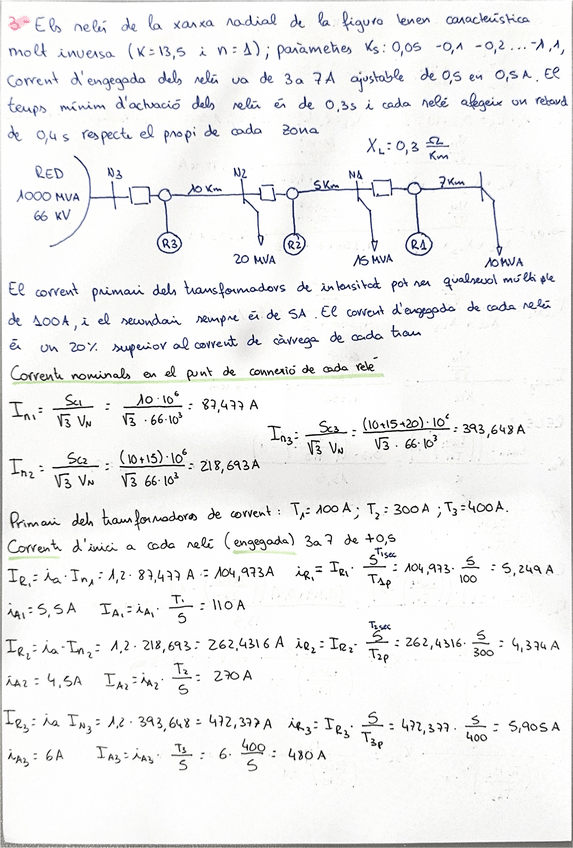 3- Els relés de la xarxa radial de la figura tenen característica
molt inversa (K=13,5 i n=1); paràmetres Ks: 0,05 -0,1 -0,2 ... -1,1,
Corrent d'engegada dels relés va de 3 a 7 A ajustable de 0,5 en 0,5A. El
temps mínim d'actuació dels relés és de 0,3s i cada relé afegeix un retard
de 0,4s respecte el propi de cada zona
X_L = 0,3 Ω/Km
RED
1000 MVA
66 KV
N3 10 Km N2 5 Km N1 7 Km
R3 R2 R1
20 MVA 15 MVA 10 MVA
El corrent primari dels transformadors de intensitat pot ser qualsevol múltiple
de 100A, i el secundari sempre és de 5A. El corrent d'engegada de cada relé
és un 20% superior al corrent de càrrega de cada tram
Corrents nominals en el punt de connexió de cada relé
I_n1 = Sc1 / √3 V_N = 10·10⁶ / √3·66·10³ = 87,477 A
I_n3 = Sc3 / √3 V_N = (10+15+20)·10⁶ / √3·66·10³ = 393,648 A
I_n2 = Sc2 / √3 V_N = (10+15)·10⁶ / √3 66·10³ = 218,693 A
Primari dels transformadors de corrent: T₁=100A; T₂=300A; T₃=400A.
Corrents d'inici a cada relé (engegada) 3 a 7 de +0,5
I_R1 = ia·I_n1 = 1,2·87,477 A = 104,973A i_R1 = I_R1 · 5 T1sec / T1p = 104,973 · 5/100 = 5,249 A
i_A1 = 5,5A I_A1 = i_A1 · T₁/5 = 110 A
I_R2 = ia·I_n2 = 1,2·218,693 = 262,4316 A i_R2 = I_R2 · 5 T2sec / T2p = 262,4316 · 5/300 = 4,374 A
i_A2 = 4,5A I_A2 = i_A2 · T₂/5 = 270 A
I_R3 = ia I_N3 = 1,2·393,648 = 472,377 A i_R3 = I_R3 · 5/T3p = 472,377 · 5/400 = 5,905 A
i_A3 = 6A I_A3 = i_A3 · T₃/5 = 6 · 400/5 = 480 A